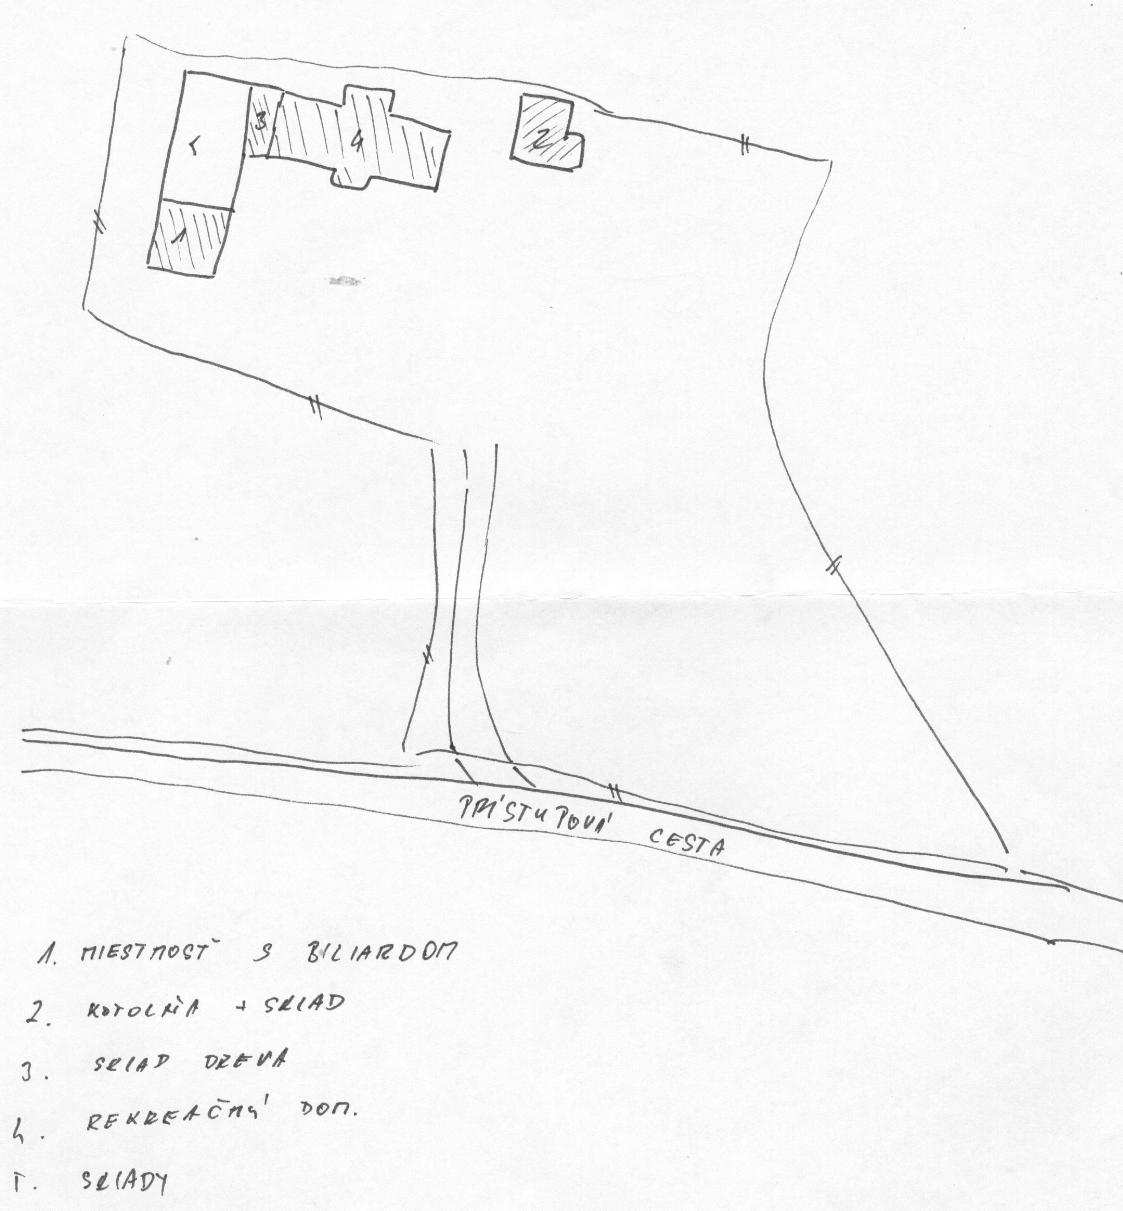 3
4
2
5
1
PRÍSTUPOVÁ CESTA
1. MIESTNOSŤ S BILIARDOM
2. KOTOLŇA + SKLAD
3. SKLAD DREVA
4. REKREAČNÝ DOM.
5. SKLADY